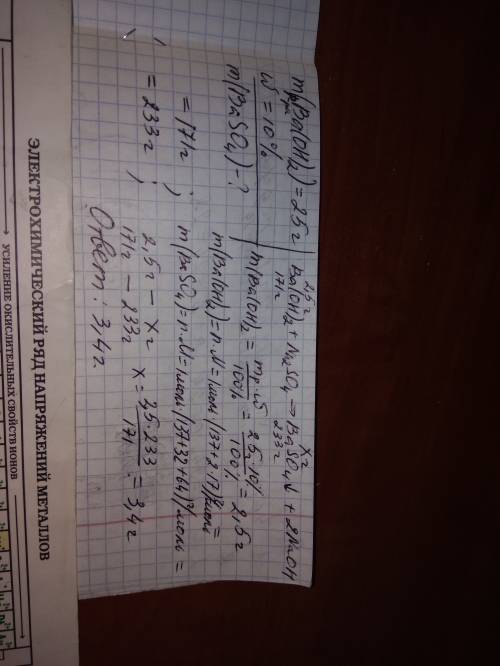 mр-ра(Ba(OH)2) = 25г
W = 10%
m(BaSO4) - ?
2,5г xг
Ba(OH)2 + Na2SO4 → BaSO4↓ + 2NaOH
171г 233г
m(Ba(OH)2 = mр·ω / 100% = 25·10% / 100% = 2,5г
m(Ba(OH)2) = n·M = 1моль·(137+2·17)г/моль =
= 171г ;
m(BaSO4) = n·M = 1моль·(137+32+64)г/моль =
= 233г ;
2,5г – xг
171г – 233г
x = 2,5·233 / 171 = 3,4г
Ответ: 3,4г
ЭЛЕКТРОХИМИЧЕСКИЙ РЯД НАПРЯЖЕНИЙ МЕТАЛЛОВ
УСИЛЕНИЕ ОКИСЛИТЕЛЬНЫХ СВОЙСТВ ИОНОВ